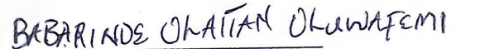 BABARINDE OLATIAN OLUWAFEMI